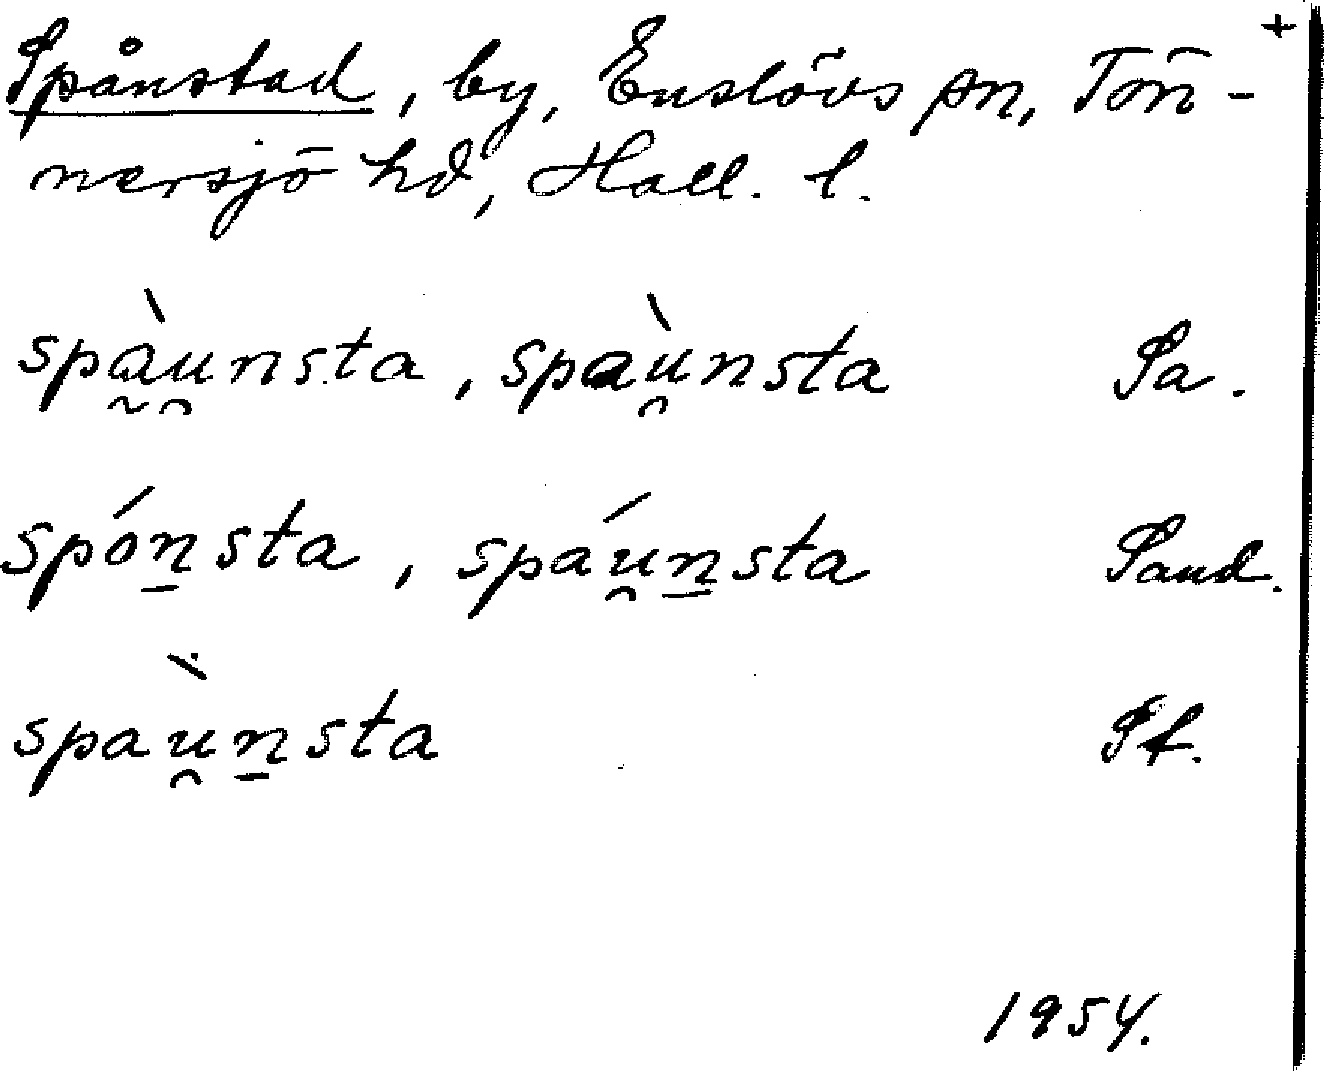 +
Spånstad, by, Enslövs sn, Tön-
nersjö hd, Hall. l.
spà̰u̯nsta, spaù̯nsta Sa.
spóṉsta, spáu̯ṉsta Sand.
spaù̯ṉsta Sf.
1954.